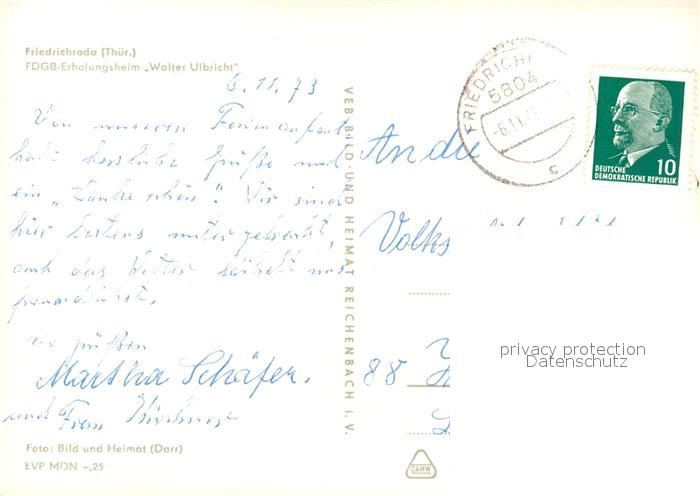 Friedrichroda (Thür.)
FDGB-Erholungsheim „Walter Ulbricht"
6.11.73
Von unserem Ferienaufent
halt herzliche Grüße und
ein „Danke schön". Wir sind
hier bestens untergebracht,
auch das Wetter lächelt uns
freundlichst.
Es grüßen
Martha Schäfer,
und Frau
Foto: Bild und Heimat (Darr)
EVP MDN –,25
VEB BILD UND HEIMAT REICHENBACH i. V.
FRIEDRICH
5804
-6.11.73
c
10
DEUTSCHE
DEMOKRATISCHE REPUBLIK
An die
Volks
88
privacy protection
Datenschutz
DAMW